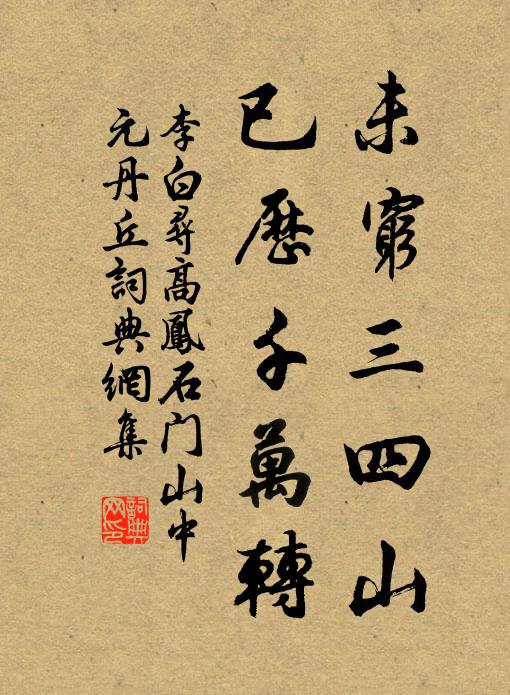 未窮三四山
已歷千萬轉
李白尋高鳳石门山中
元丹丘詞典網集
詞典
网印